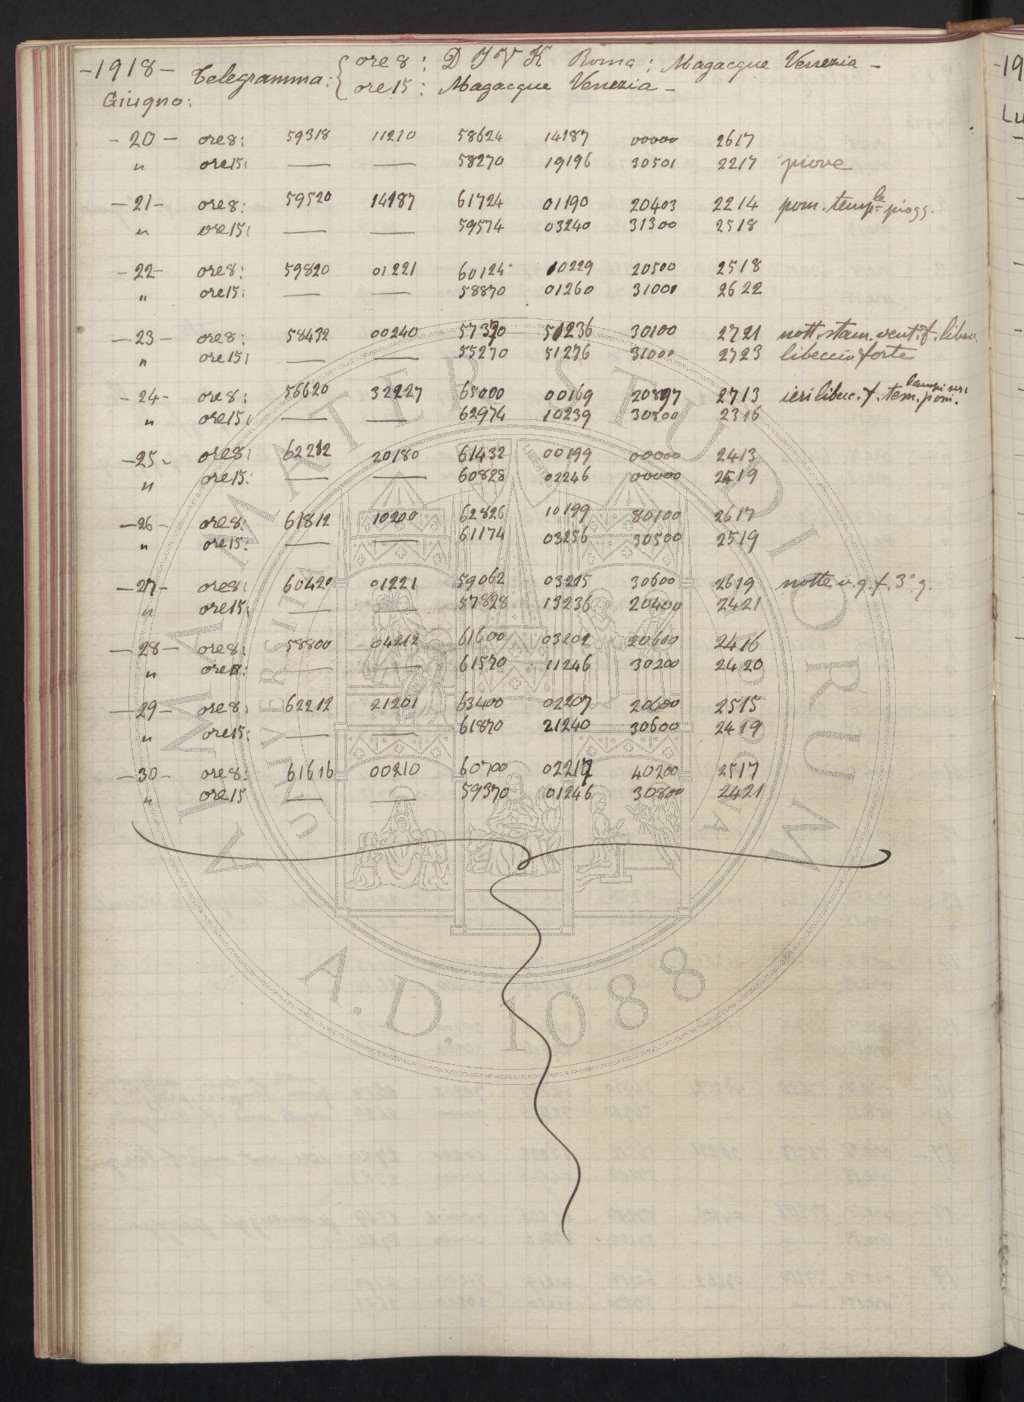 -1918- Telegramma: ore 8: D I V K Roma: Magacque Venezia -
Giugno: ore 15: Magacque Venezia -
- 20 - ore 8: 59318 11210 58624 14187 00000 2617
" ore 15: — — 58270 19196 30501 2217 piove
- 21 - ore 8: 59520 14187 61724 01190 20403 2214 pom. temp.le piogg.
" ore 15: — — 59574 03240 31300 2518
- 22 - ore 8: 59820 01221 60124 10229 20500 2518
" ore 15: — — 58870 01260 31001 2622
- 23 - ore 8: 58432 00240 57370 51236 30100 2721 nott. stam. vent. f. libec.
" ore 15: — — 55270 51276 31000 2723 libeccio forte
- 24 - ore 8: 56620 32227 65000 00169 20897 2713 ieri libec. f. tem. pom.
" ore 15: — — 62974 10239 30500 2316
- 25 - ore 8: 62212 20180 61432 00199 00000 2413
" ore 15: — — 60828 02246 00000 2519
- 26 - ore 8: 61812 10200 62826 10199 80100 2617
" ore 15: — — 61174 03256 30500 2519
- 27 - ore 8: 60420 01221 59062 03215 30600 2619 notte
" ore 15: — — 57828 13236 20400 2421
- 28 - ore 8: 58800 04212 61600 03202 20600 2416
" ore 15: — — 61570 11246 30200 2420
- 29 - ore 8: 62212 21201 63400 02207 20600 2515
" ore 15: — — 61870 21240 30600 2419
- 30 - ore 8: 61616 00210 60700 02217 40200 2517
" ore 15 — — 59370 01246 30800 2421
ALMA MATER STUDIORUM
UNIVERSITÀ
A.D. 1088
-19
Lu